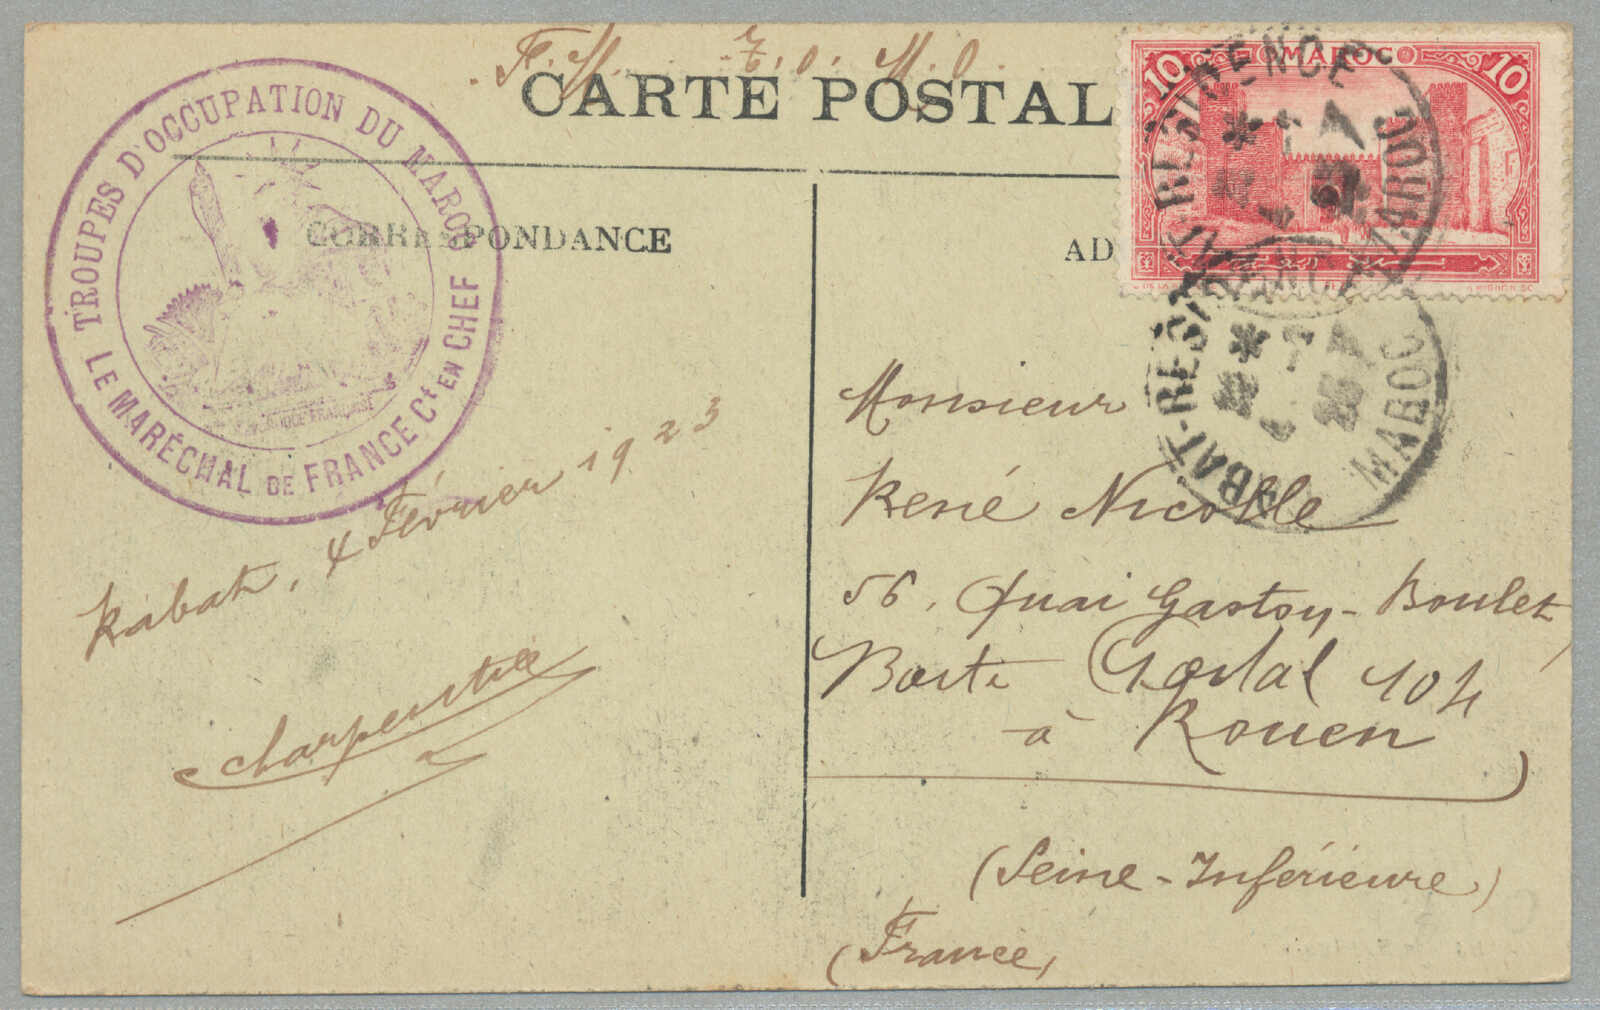 F. M. Z. O. M. O.
CARTE POSTAL
TROUPES D'OCCUPATION DU MAROC
LE MARÉCHAL DE FRANCE Ct EN CHEF
CORRESPONDANCE
AD
MAROC
10 10
RABAT-RÉSIDENCE
MAROC
RABAT-RÉSIDENCE
MAROC
Rabat, 4 Février 1923
Charpentier
Monsieur
René Nicolle
56, Quai Gaston-Boulet
Boite Postal 104
à Rouen
(Seine-Inférieure)
(France)